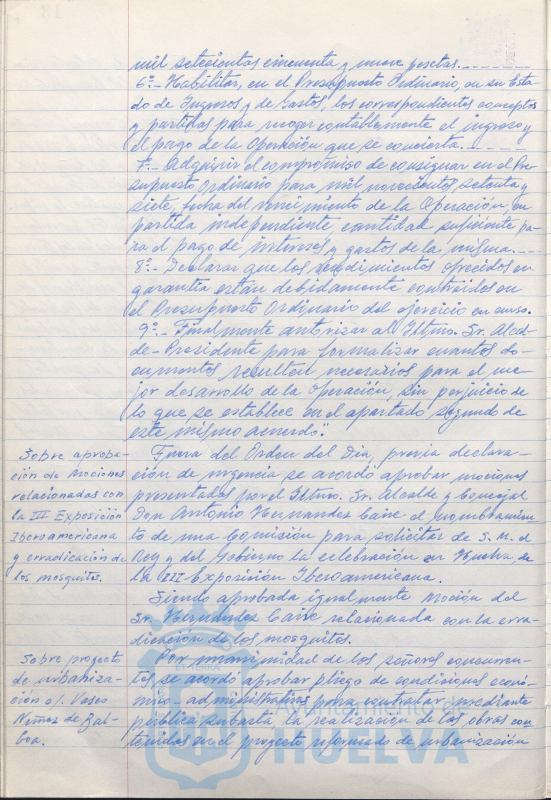 mil setecientos cincuenta y nueve pesetas.
6º.- Habilitar, en el Presupuesto Ordinario, en su Esta-
do de Ingresos y de Gastos, los correspondientes conceptos
y partidas para recoger contablemente el ingreso y
el pago de la Operación que se concierta.
7º.- Adquirir el compromiso de consignar en el Pre-
supuesto Ordinario para mil novecientos setenta y
siete, fecha del vencimiento de la Operación, en
partida independiente cantidad suficiente pa-
ra el pago de intereses y gastos de la misma.
8º.- Declarar que los rendimientos ofrecidos en
garantía están debidamente contraidos en
el Presupuesto Ordinario del ejercicio en curso.
9º.- Finalmente autorizar al Iltmo. Sr. Alcal-
de-Presidente para formalizar cuantos do-
cumentos resulten necesarios para el me-
jor desarrollo de la Operación, sin perjuicio de
lo que se establece en el apartado segundo de
este mismo acuerdo".
Sobre aproba-
ción de mociones
relacionadas con
la III Exposición
Iberoamericana
y erradicación de
los mosquitos.
Fuera del Orden del Día, previa declara-
ción de urgencia se acordó aprobar mociones
presentadas por el Iltmo. Sr. Alcalde y Concejal
Don Antonio Hernandez Caire el nombramien-
to de una Comisión para solicitar de S.M. el
Rey y del Gobierno la celebración en Huelva, de
la III Exposición Iberoamericana.
Siendo aprobada igualmente moción del
Sr. Hernandez Caire relacionada con la erra-
dicación de los mosquitos.
Sobre proyecto
de urbaniza-
ción c/. Vasco
Nuñez de Bal-
boa.
Por unanimidad de los señores concurren-
tes, se acordó aprobar pliego de condiciones econó-
mico-administrativas para contratar, mediante
pública subasta, la realización de las obras con-
tenidas en el proyecto reformado de urbanización
HUELVA